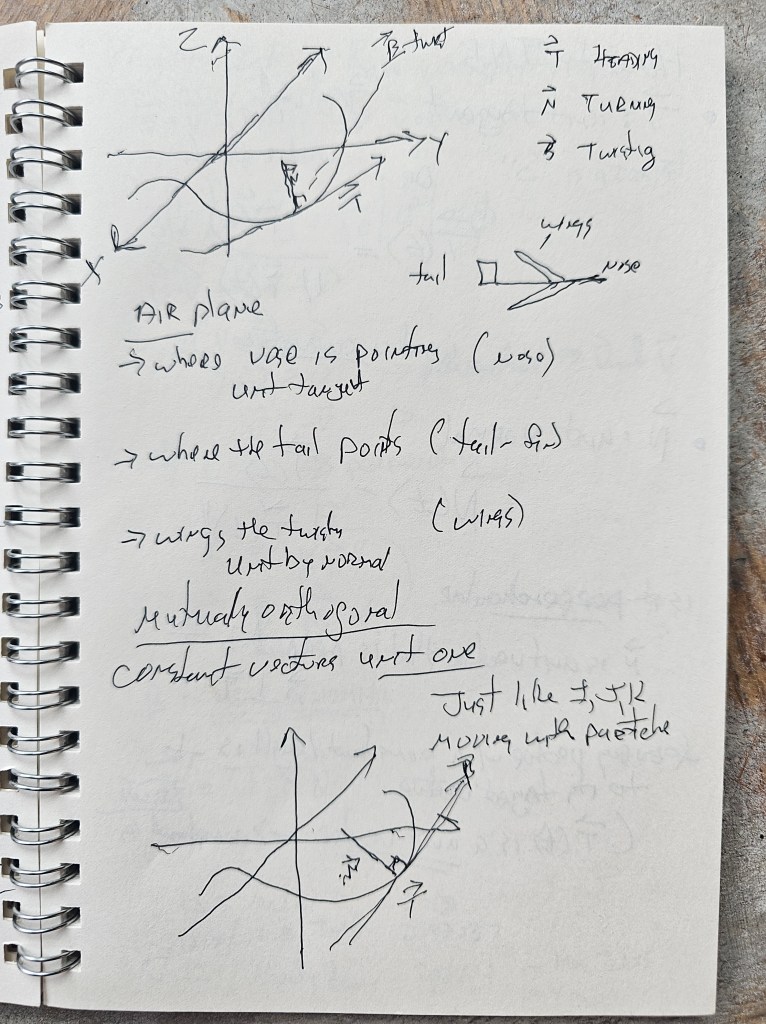 Z
B-twist
T HEADING
N TURNING
B Twisting
Y
N
T
X
wings
tail
Nose
AIR plane
→ where nose is pointing (Nose)
unit tangent
→ where the tail points (tail-fin)
→ wings the twisty (wings)
unit by normal
Mutualy orthogonal
constant vectors unit one
Just like I, J, K
moving with particle
B
N
T